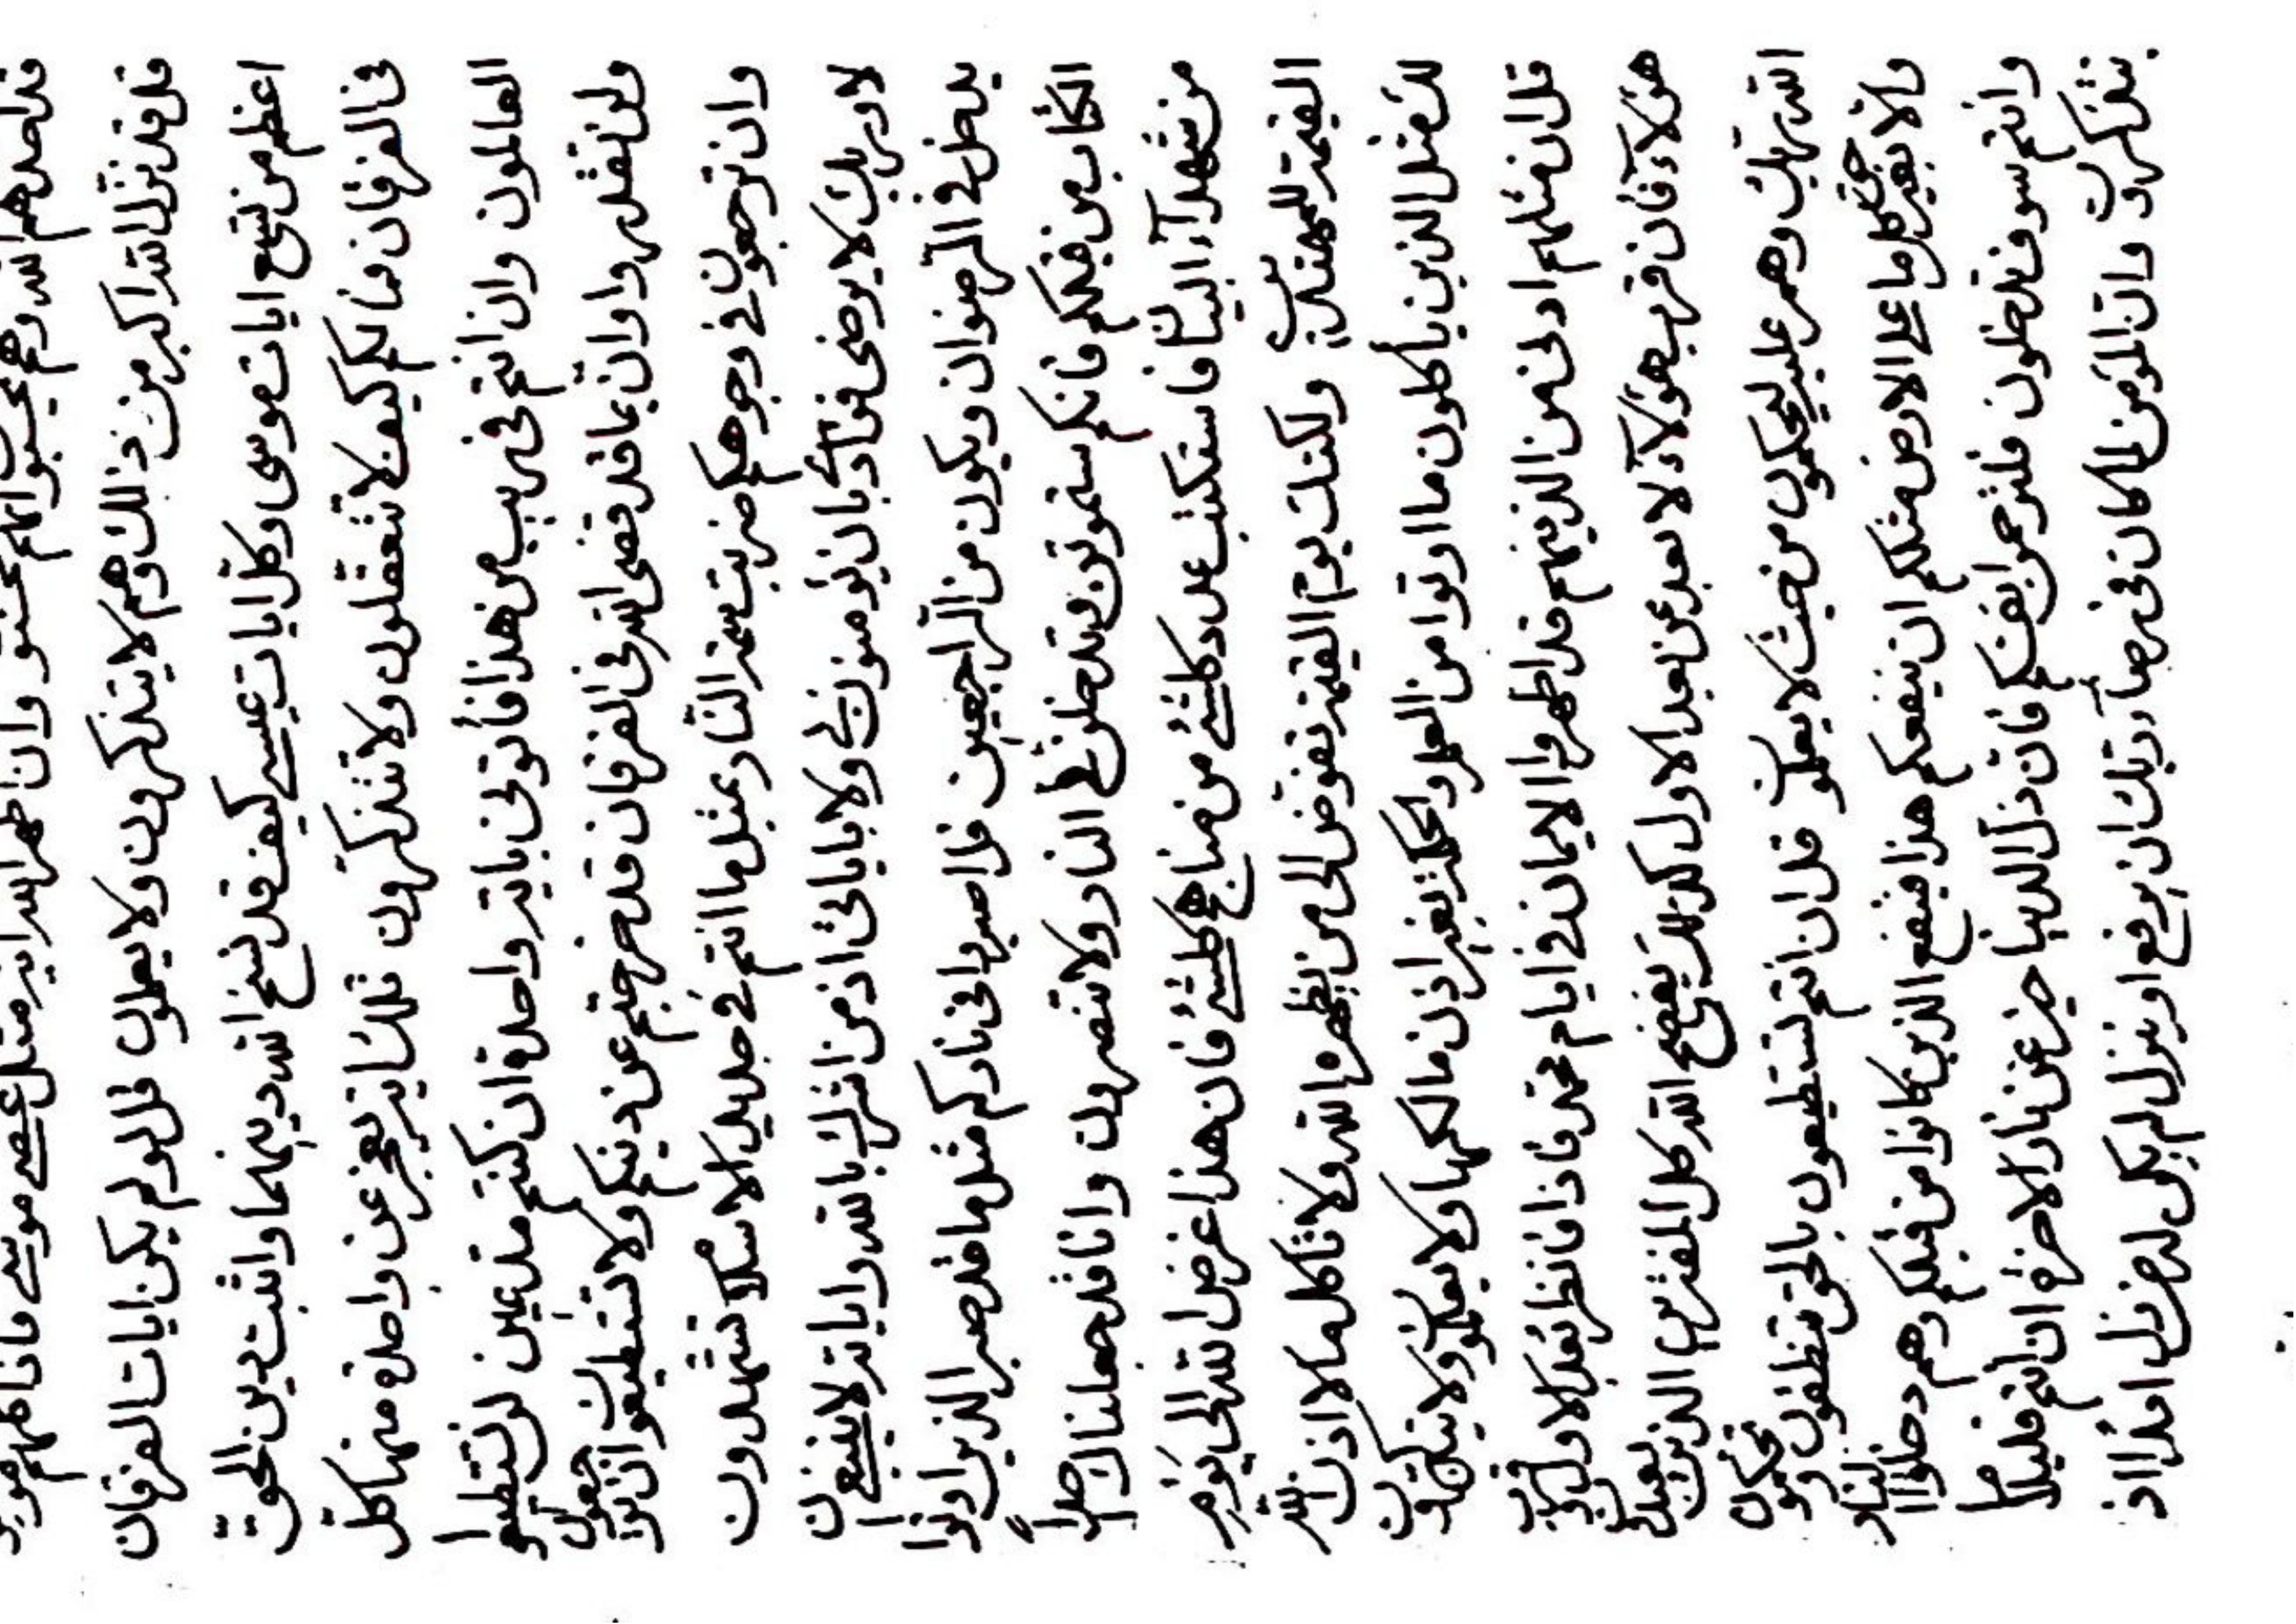 وان اظهر الله اية مثل عصى موسى
فلقد نزل الله اكبر من ذلك وهم لا يتذكرون ولا يعلمون قل لو لم يكن ايات الفرقان
اعظم من تسع ايات موسى وكل ايات عيسى كيف قد نسخ الله دينهما واثبت دين الحق
في الفرقان فما لكم كيف لا تتعقلون ولا تتذكرون تلك اية يعجز عن واحدة منها كل
العالمون وان انتم في ريب من هذا فأتوني باية واحدة ان كنتم مدعين لن تستطيعوا
ولن تقدروا وان بما قد قضى الله في الفرقان قد خرجتم عن دينكم ولا تستطيعون ان
وان ترجعون في وجوهكم ضربت سمة النار بمثل ما انتم في تشهدون
لا وربك لا يرضى فؤاد بان تؤمنون بي ولا باياتي اذ من اشرك بالله واياته لا ينفعن
يدخل في الرضوان ويكون من الراجعين فلاصبر اني في ناركم مثل ما قد صبر الذين اوتوا
الكتاب من قبلكم فانكم ستموتون وتدخلون في النار ولا تنصرون وانا قد جعلناك صراطاً
من شهداء البيان فاستكتب عدد كلشئ من مناهج كلشئ فان هذا عرض الله الى يوم
القيمة للمهتدين ولكنك يوم القيمة تفوض الى من يظهره الله ولا تاكل ما لا اذن الله
لك مثل الذين ياكلون ما اوتوا من العلم والحكمة بغير اذن مالكها ولا يعلمون ولا
قل ان مثلهم ادنى من الذينهم قد اظهروا الايمان في ايام محمد فاذا فانظر بعد الاولين
هؤلاء فان قرب هؤلاء لا بعد عن بعد الاول كذلك يفضح الله كل المفترين الذين يعبدون
الله ربك وهم عليه ليحكمون من حيث لا يعلمون قل ان انتم تستطيعون بالحق تنطقون
والا بغير حق كل ما على الارض مثلكم ان ينفعكم هذا فينفع الذين كانوا من قبلكم وهم دخلوا النار
وانتم سوف تدخلون فلترحمن انفسكم فان ذل الدنيا خير عن نار الاخرة ان انتم قليلاً ما
تتذكرون وان المؤمن لما كان في رضاء ربك ان يرفع او ينزل لم يكن له حزن ابداً اذ